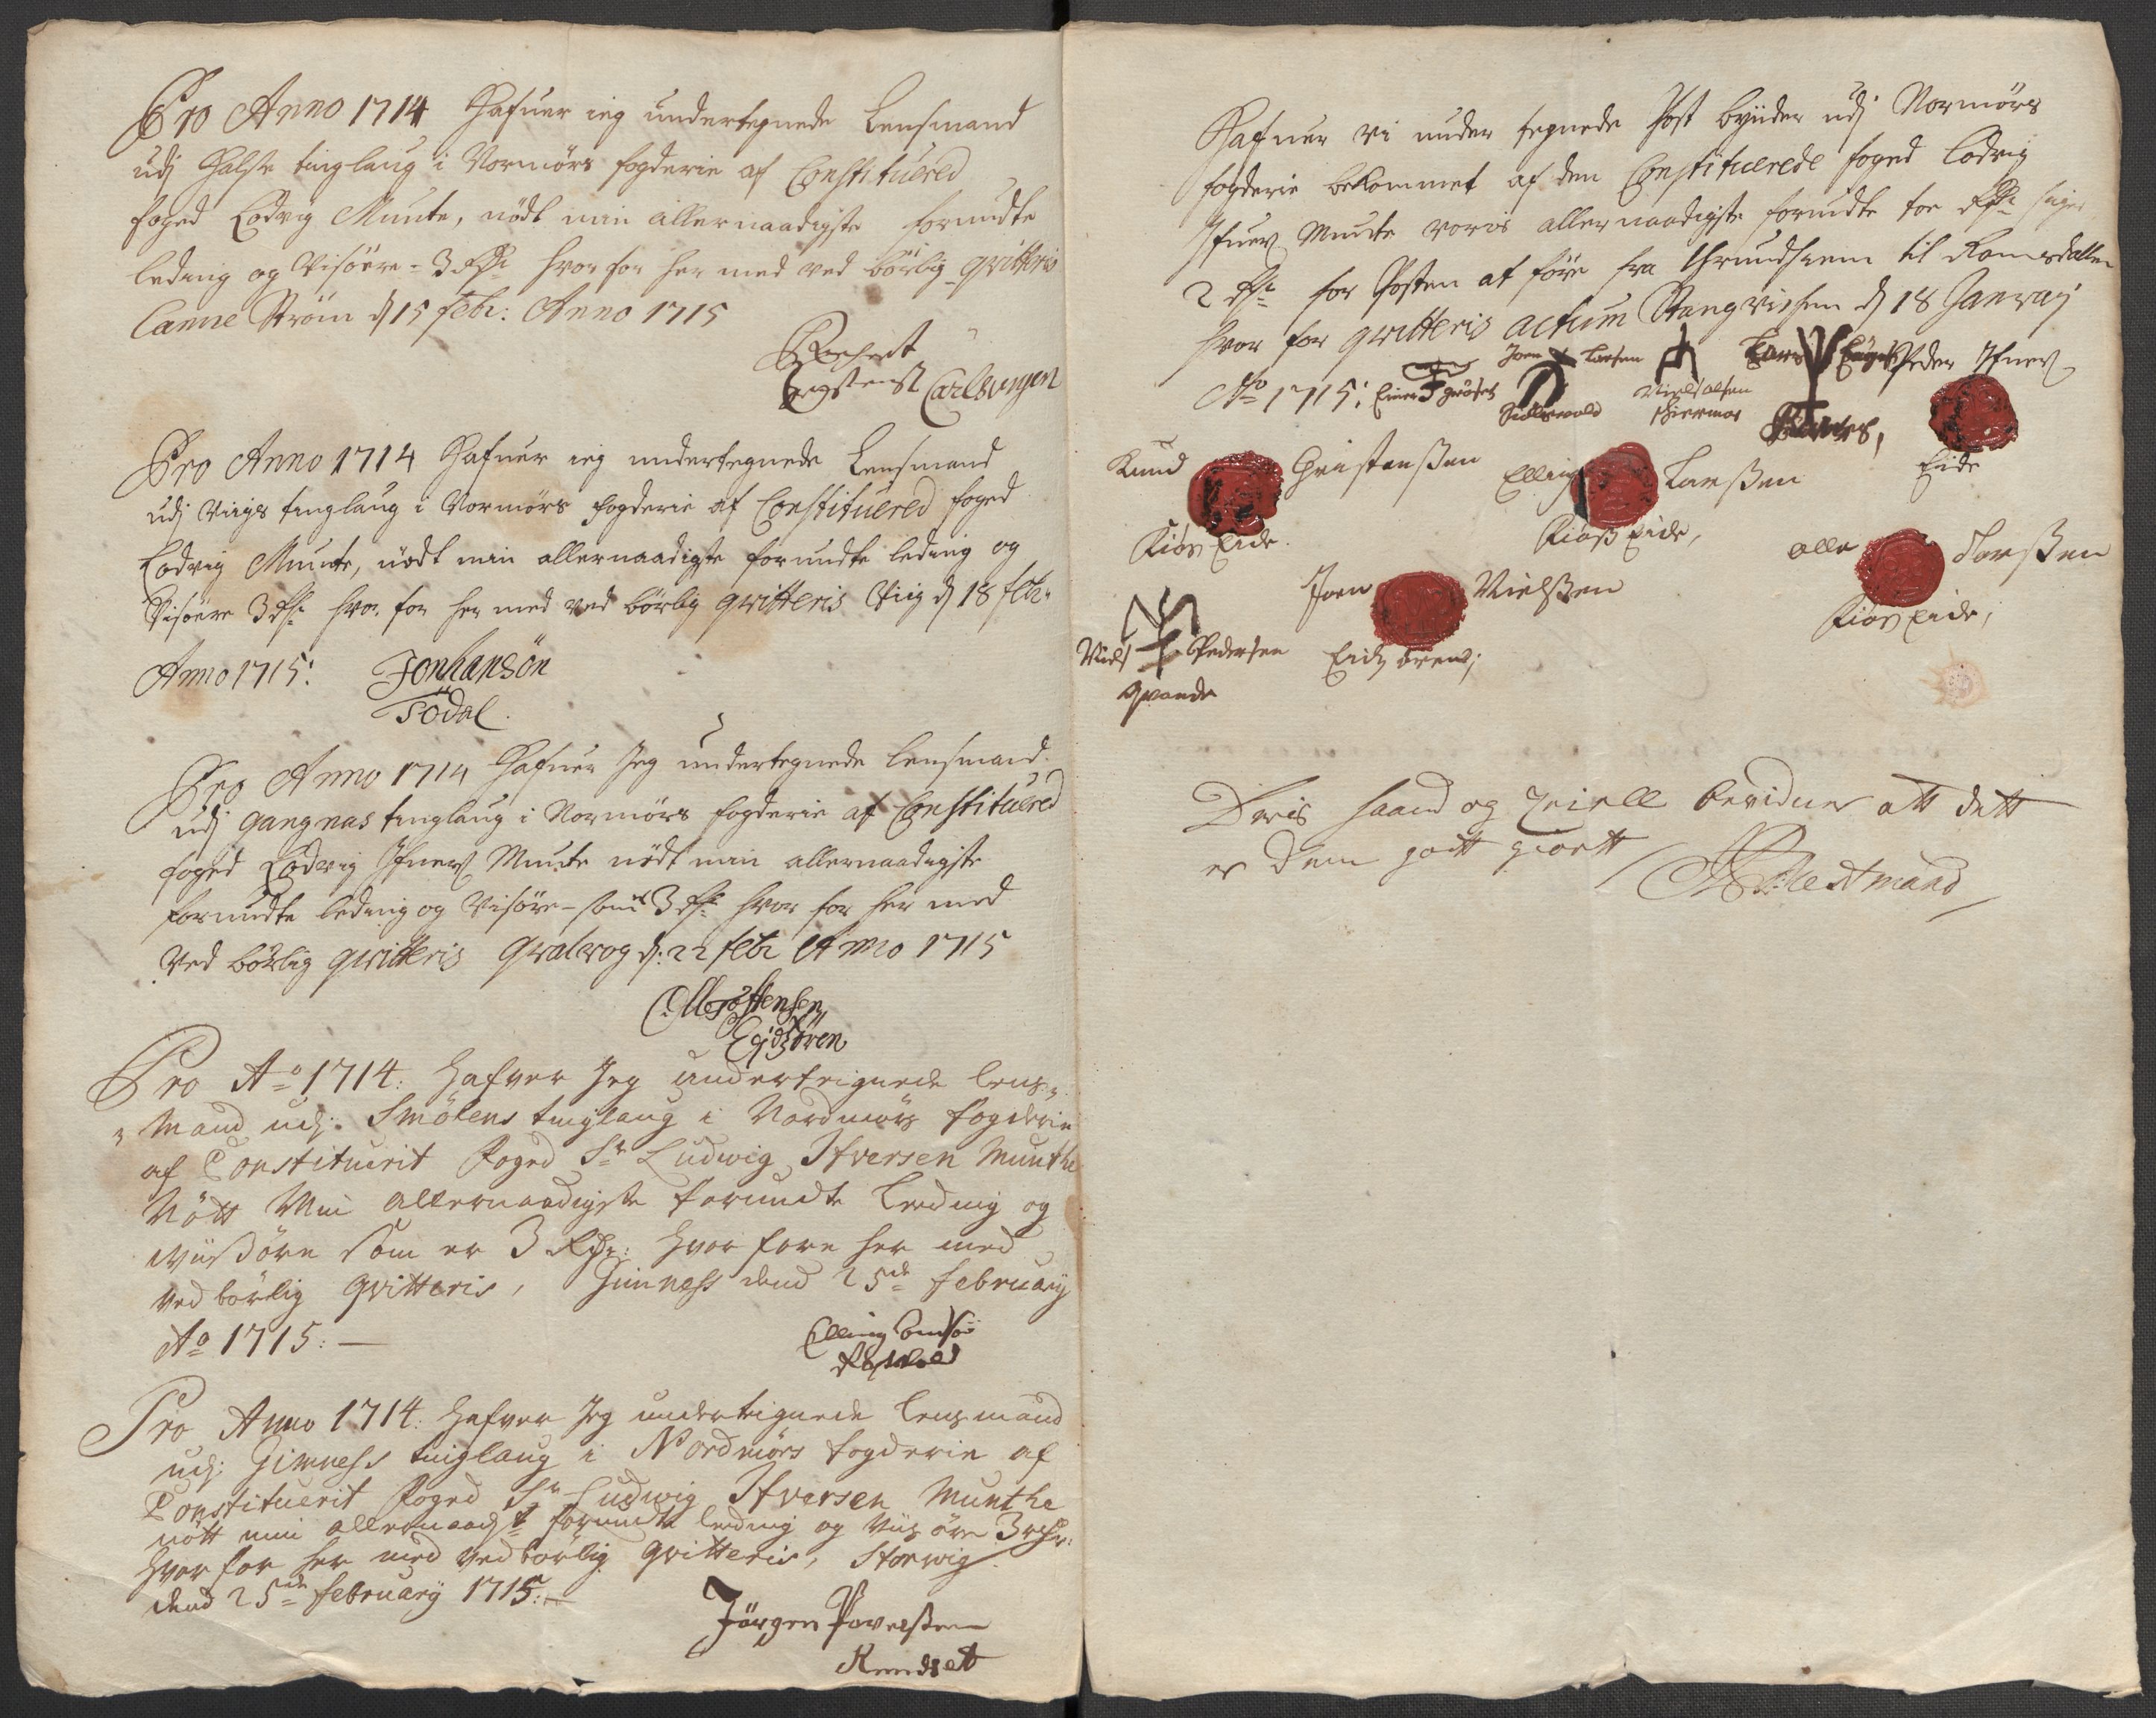 Pro Anno 1714 Hafuer ieg undertegnede Lensmand
udj Halse tinglaug i Normørs fogderie af Constituered
foged Lodvig Munte, nødt min allernaadigste forundte
leding og Visøere - 3 Rdr hvor for her med ved børlig qvitteris
Canne Strøm d 15 febr: Anno 1715
Carlsvigen
Pro Anno 1714 Hafuer ieg undertegnede Lensmand
udj Viigs tinglaug i Normørs fogderie af Constituered foged
Lodvig Munte, nødt min allernaadigste forundte leding og
Visøere 3 Rdr hvor for her med ved børlig qvitteris Viig d 18 febr
Anno 1715: Jonhansøn
Tødal
Pro Anno 1714 Hafuer Jeg undertegnede lensmand
udj Gangnas tinglaug i Normørs fogderie af Constituered
foged Lodvig Ifuers Munte nødt min allernaadigste
forundte leding og Visøre - som 3 Rdr hvor for her med
Ved børlig qvitteris Qvalvog d: 22 febr Anno 1715
Ole Tostensen
Eidzøren
Pro Ao 1714: Hafver Jeg underteignede lens-
mand udj: Smølens tinglaug i Nordmørs fogderie
af Constituerit Foged Sr Ludwig Ifversen Munthe
Nøtt Min allernaadigste forundte Leeding og
wiisøre som er 3 Rdr: hvor fore her med
ved børlig qvitteris, Gimness dend 25de february
Ao 1715: —
Elling
Pro Anno 1714: Hafver Jeg underteignede lensmand
udj: Gimness tinglaug i Nordmørs fogderie af
Constituerit Foged Sr Ludwig Ifversen Munthe
nøtt min allernaadgt forundte leeding og Viisøre 3 Rdr:
hvor for her med ved børlig qvitteris, Storwig
dend 25de february 1715: —
Jørgen Povelssen
Rendset
Hafuer vi under tegnede Post bynder udj Normørs
fogderie bekommet af den Constituerede foged Lodvig
Ifuers Munte voris allernaadigste forundte toe Rdr siger
2 Rdr for Posten at føre fra Thrundhiem til Romsdallen
hvor for qvitteris actum Stangvichen d 18 Janvarj
Ao 1715: Einer Joen Larsen Niels olsen Lars Peder Ifuers
Eide
Knud Christenssen Elling Larssen
Kiøs Eide. Kiøs Eide,
olle Larssen
Kiøs Eide,
Joen Nielssen
Eidz ørens;
Niels Pedersen
Qvande
Deris haand og Zeiell bevidner att dett
er dem gott giortt